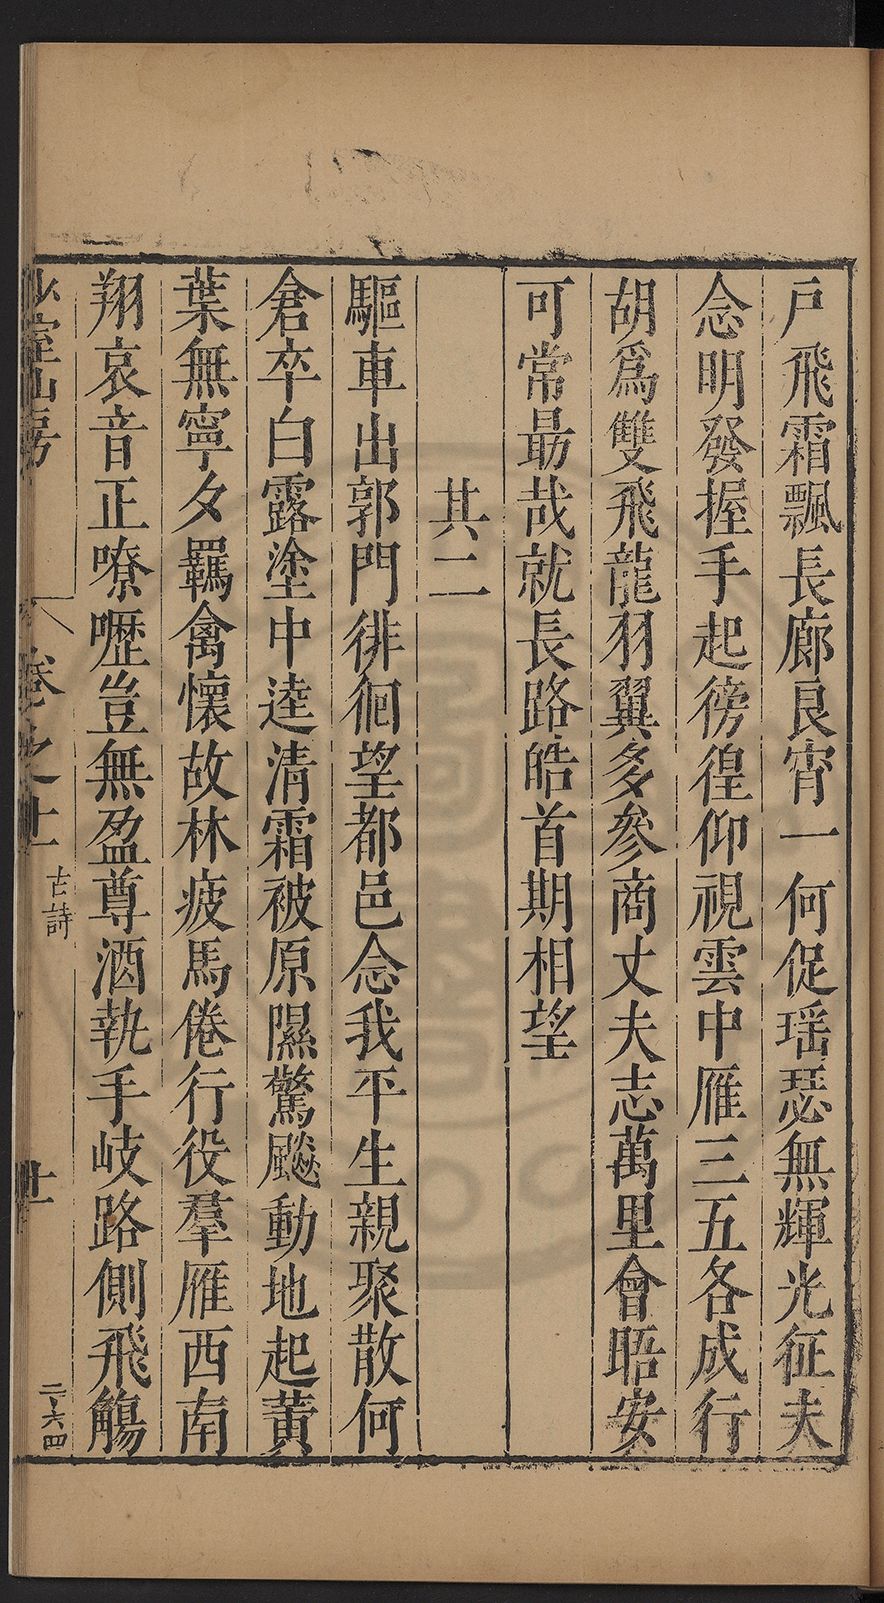 戸飛霜飄長廊良宵一何促瑶瑟無輝光征夫
念明發握手起徬徨仰視雲中雁三五各成行
胡爲雙飛龍羽翼多參商丈夫志萬里會晤安
可常最哉就長路皓首期相望
其二
驅車出郭門徘徊望都邑念我平生親聚散何
倉卒白露塗中逵清霜被原隰驚飈動地起黃
葉無寧夕羈禽懷故林疲馬倦行役羣雁西南
翔哀音正嘹嚦豈無盈尊酒執手岐路側飛觴
少室山房
卷之十一
古詩
二六四